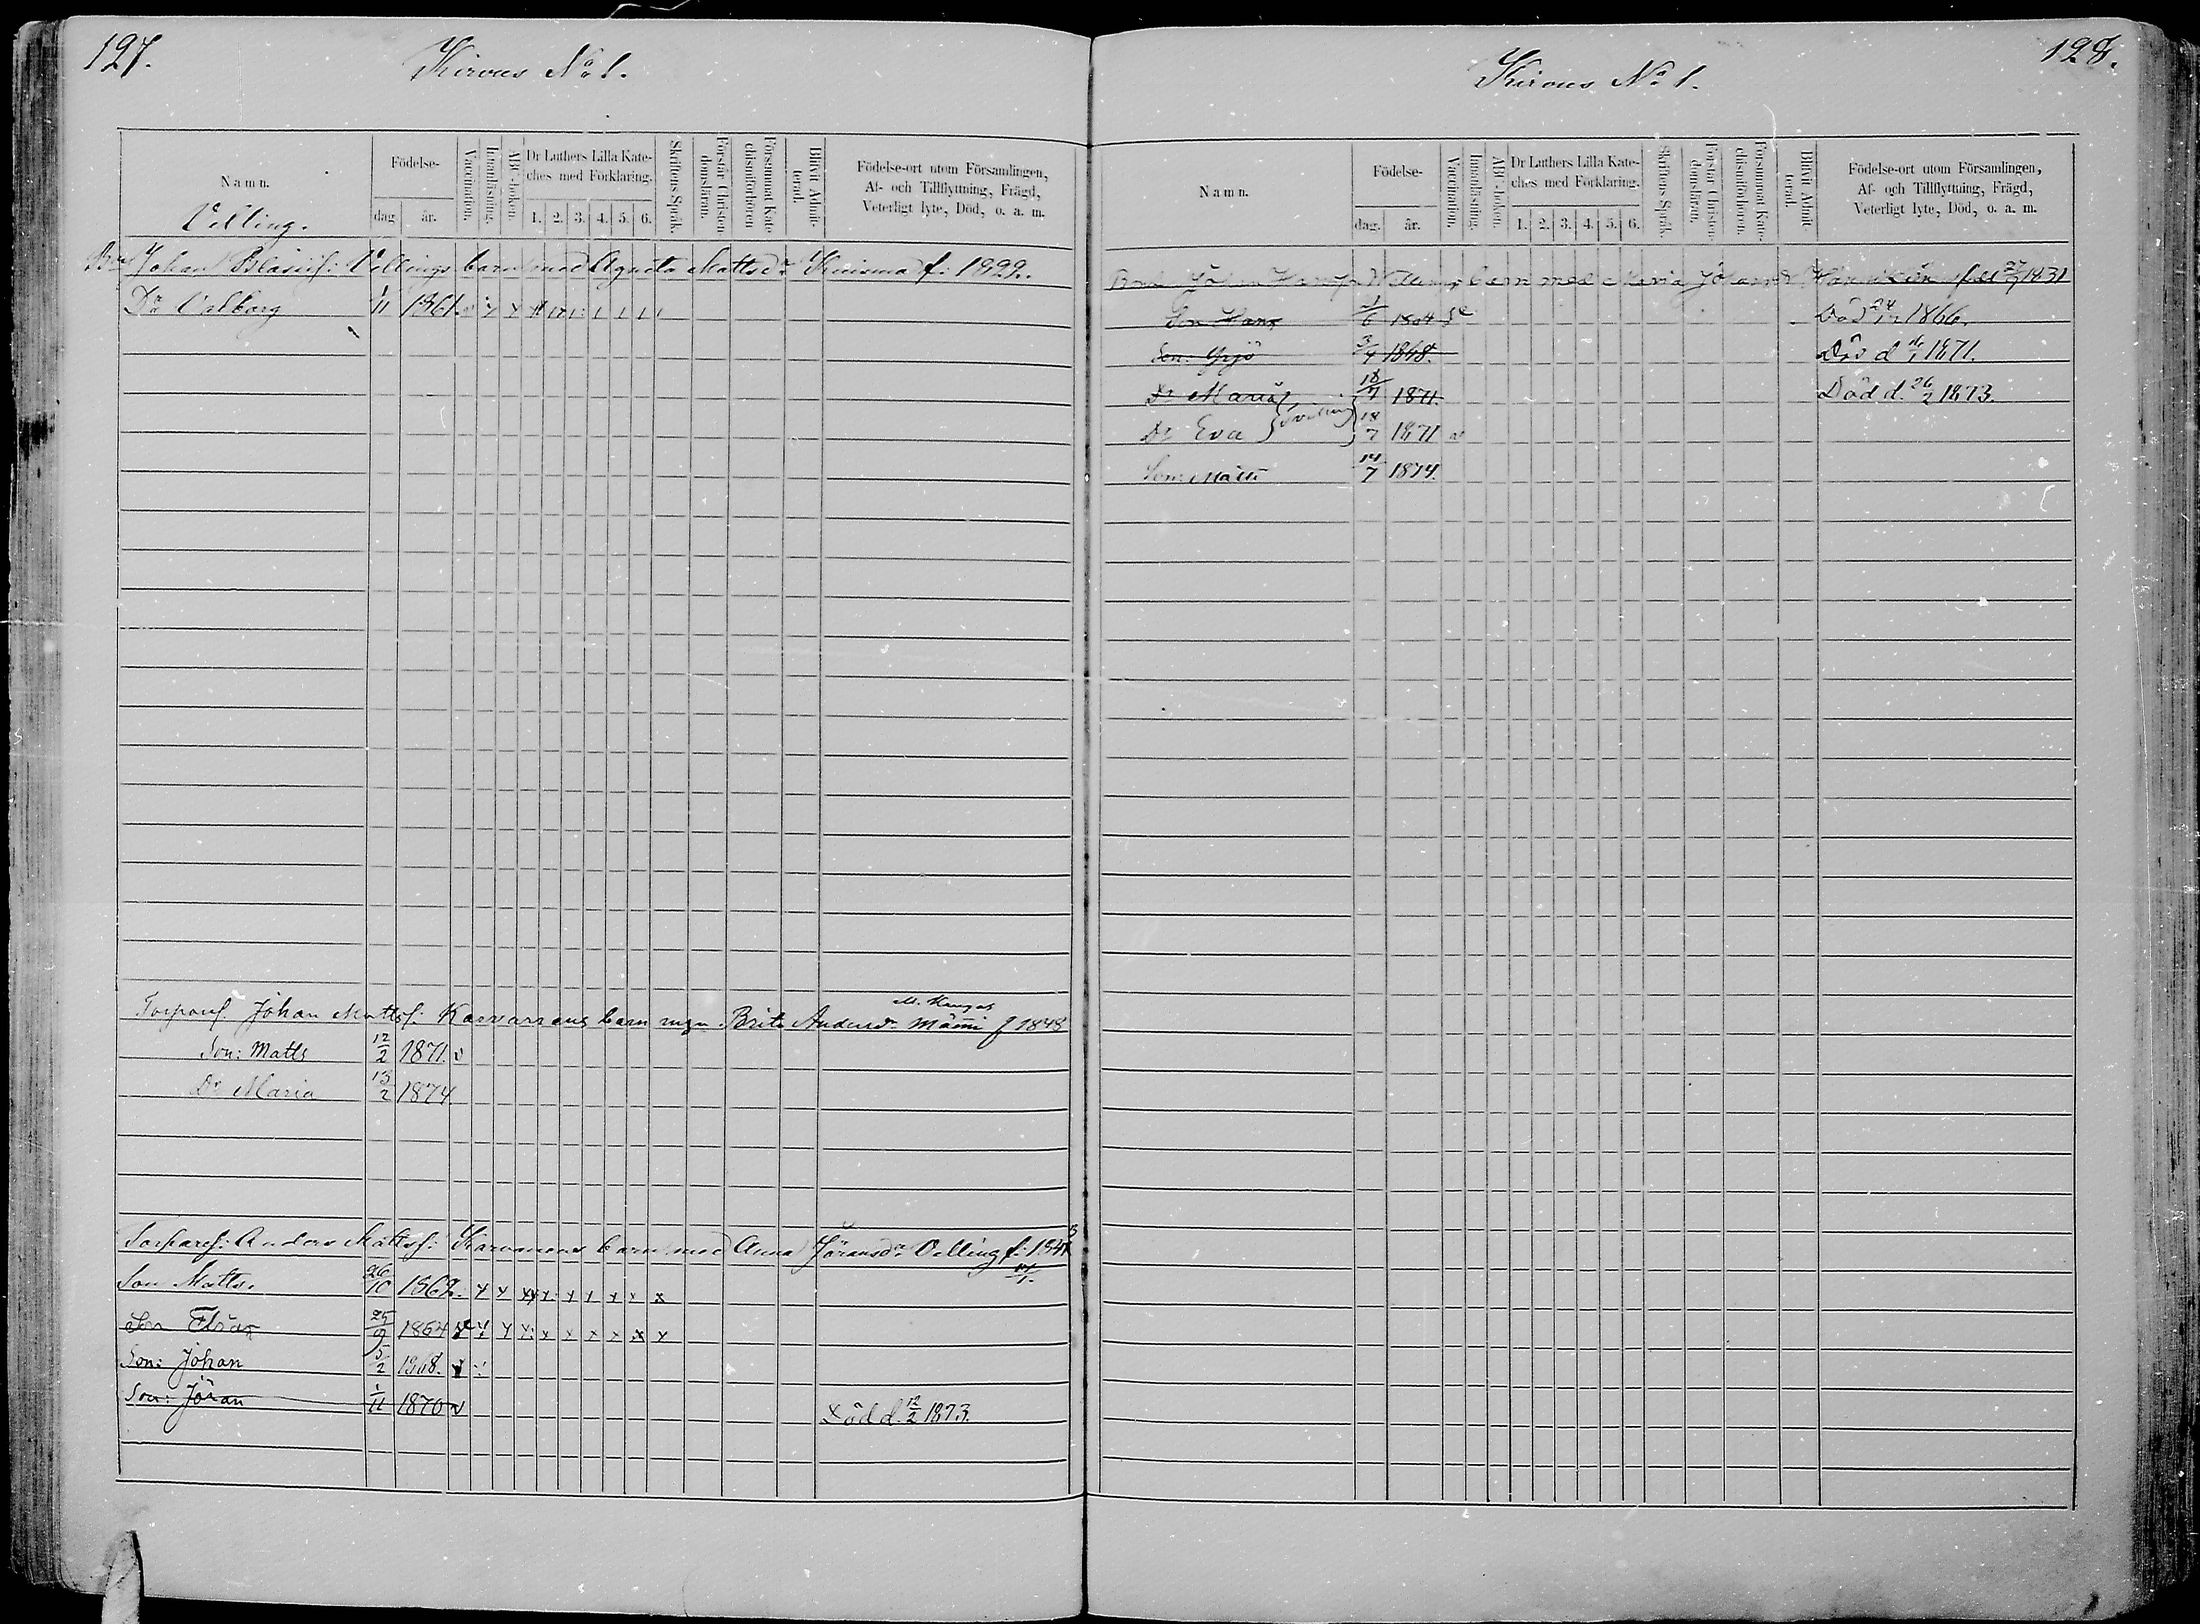 127.
Kirvus No 1.
Namn.
Födelse-
dag. år.
Vaccination.
Innanläsning.
ABC-boken.
Dr Luthers Lilla Kate-
ches med Förklaring.
1. 2. 3. 4. 5. 6.
Skriftens Språk.
Förstår Christen-
domsläran.
Försummat Kate-
chismiförhören
Blifvit Admit-
terad.
Födelse-ort utom Församlingen,
Af- och Tillflyttning, Frägd,
Veterligt lyte, Död, o. a. m.
Villing.
Johan Blasiif: Villings barn med Agneta Mattsdr f: 1822.
Dr Valborg 1/11 1861.
M. Kangas
Torparef. Johan Mattsf: Karvanens barn m Brita Andersdr f 1848
Son: Matts 12/2 1871. v
Dr Maria 13/2 1874
Torparef: Anders Mattsf: Karvanens barn med Anna Göransdr Villing f:
Son Matts. 26/10 1862. x x x x x x x x x
Son 25/9 1864 x x x x x x x x
Son: Johan 5/2 1868.
Son: Jöran 1/11 1870 v Död d. 12/2 1873.
128.
Kirvus No 1.
Namn.
Födelse-
dag. år.
Vaccination.
Innanläsning.
ABC-boken.
Dr Luthers Lilla Kate-
ches med Förklaring.
1. 2. 3. 4. 5. 6.
Skriftens Språk.
Förstår Christen-
domsläran.
Försummat Kate-
chismiförhören.
Blifvit Admit-
terad.
Födelse-ort utom Församlingen,
Af- och Tillflyttning, Frägd,
Veterligt lyte, Död, o. a. m.
Johan Villings barn med Maria Johansdr 1831
Son Hans 1/6 1864 Död 24/12 1866.
Son: Yrjö 3/4 1868. Död d 1871.
Dr Maria 18/7 1871. Död d. 26/2 1873.
Dr Eva } tvilling } 18/7 1871 v
Son: Matts 14/7 1874.